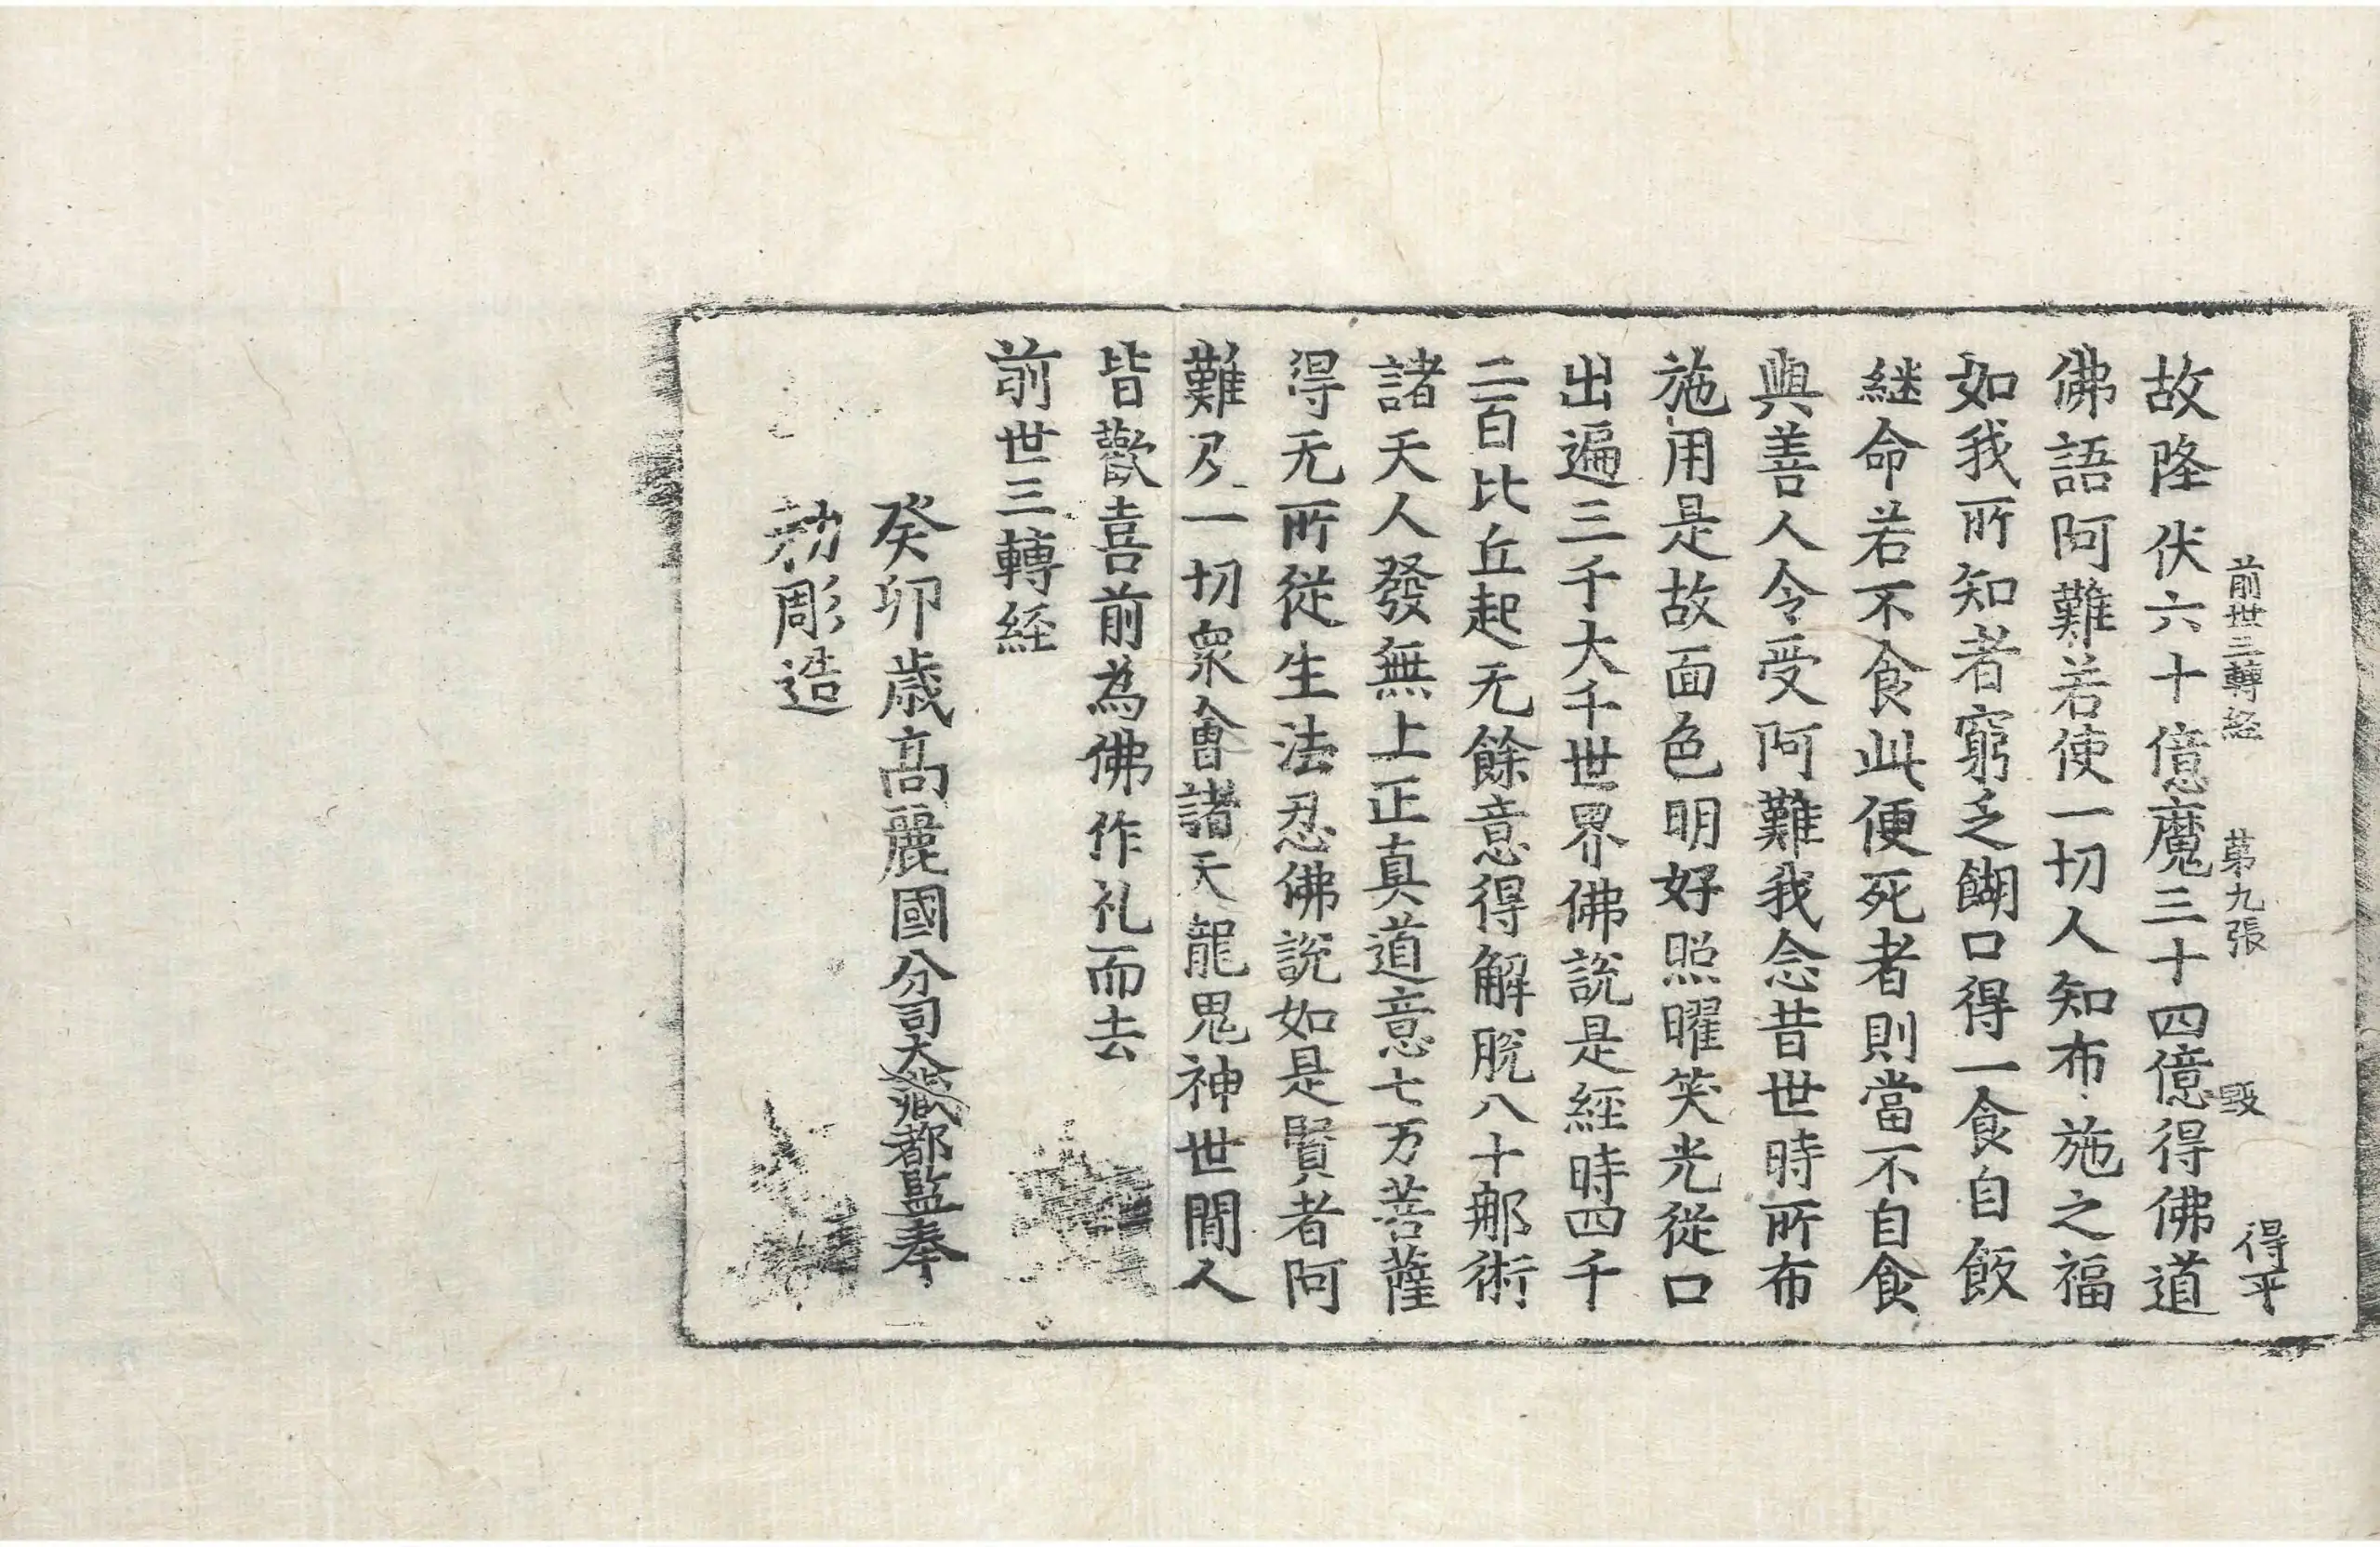 前世三轉経 第九張 毀 得平
故降伏六十億魔三十四億得佛道
佛語阿難若使一切人知布施之福
如我所知者窮乏餬口得一食自飯
継命若不食此便死者則當不自食
與善人令受阿難我念昔世時所布
施用是故面色明好照曜笑光從口
出遍三千大千世界佛說是經時四千
二百比丘起无餘意得解脫八十郍術
諸天人發無上正真道意七万菩薩
得无所從生法忍佛說如是賢者阿
難及一切衆會諸天龍鬼神世閒人
皆歡喜前為佛作礼而去
前世三轉経
癸卯歳高麗國分司大藏都監奉
勑彫造